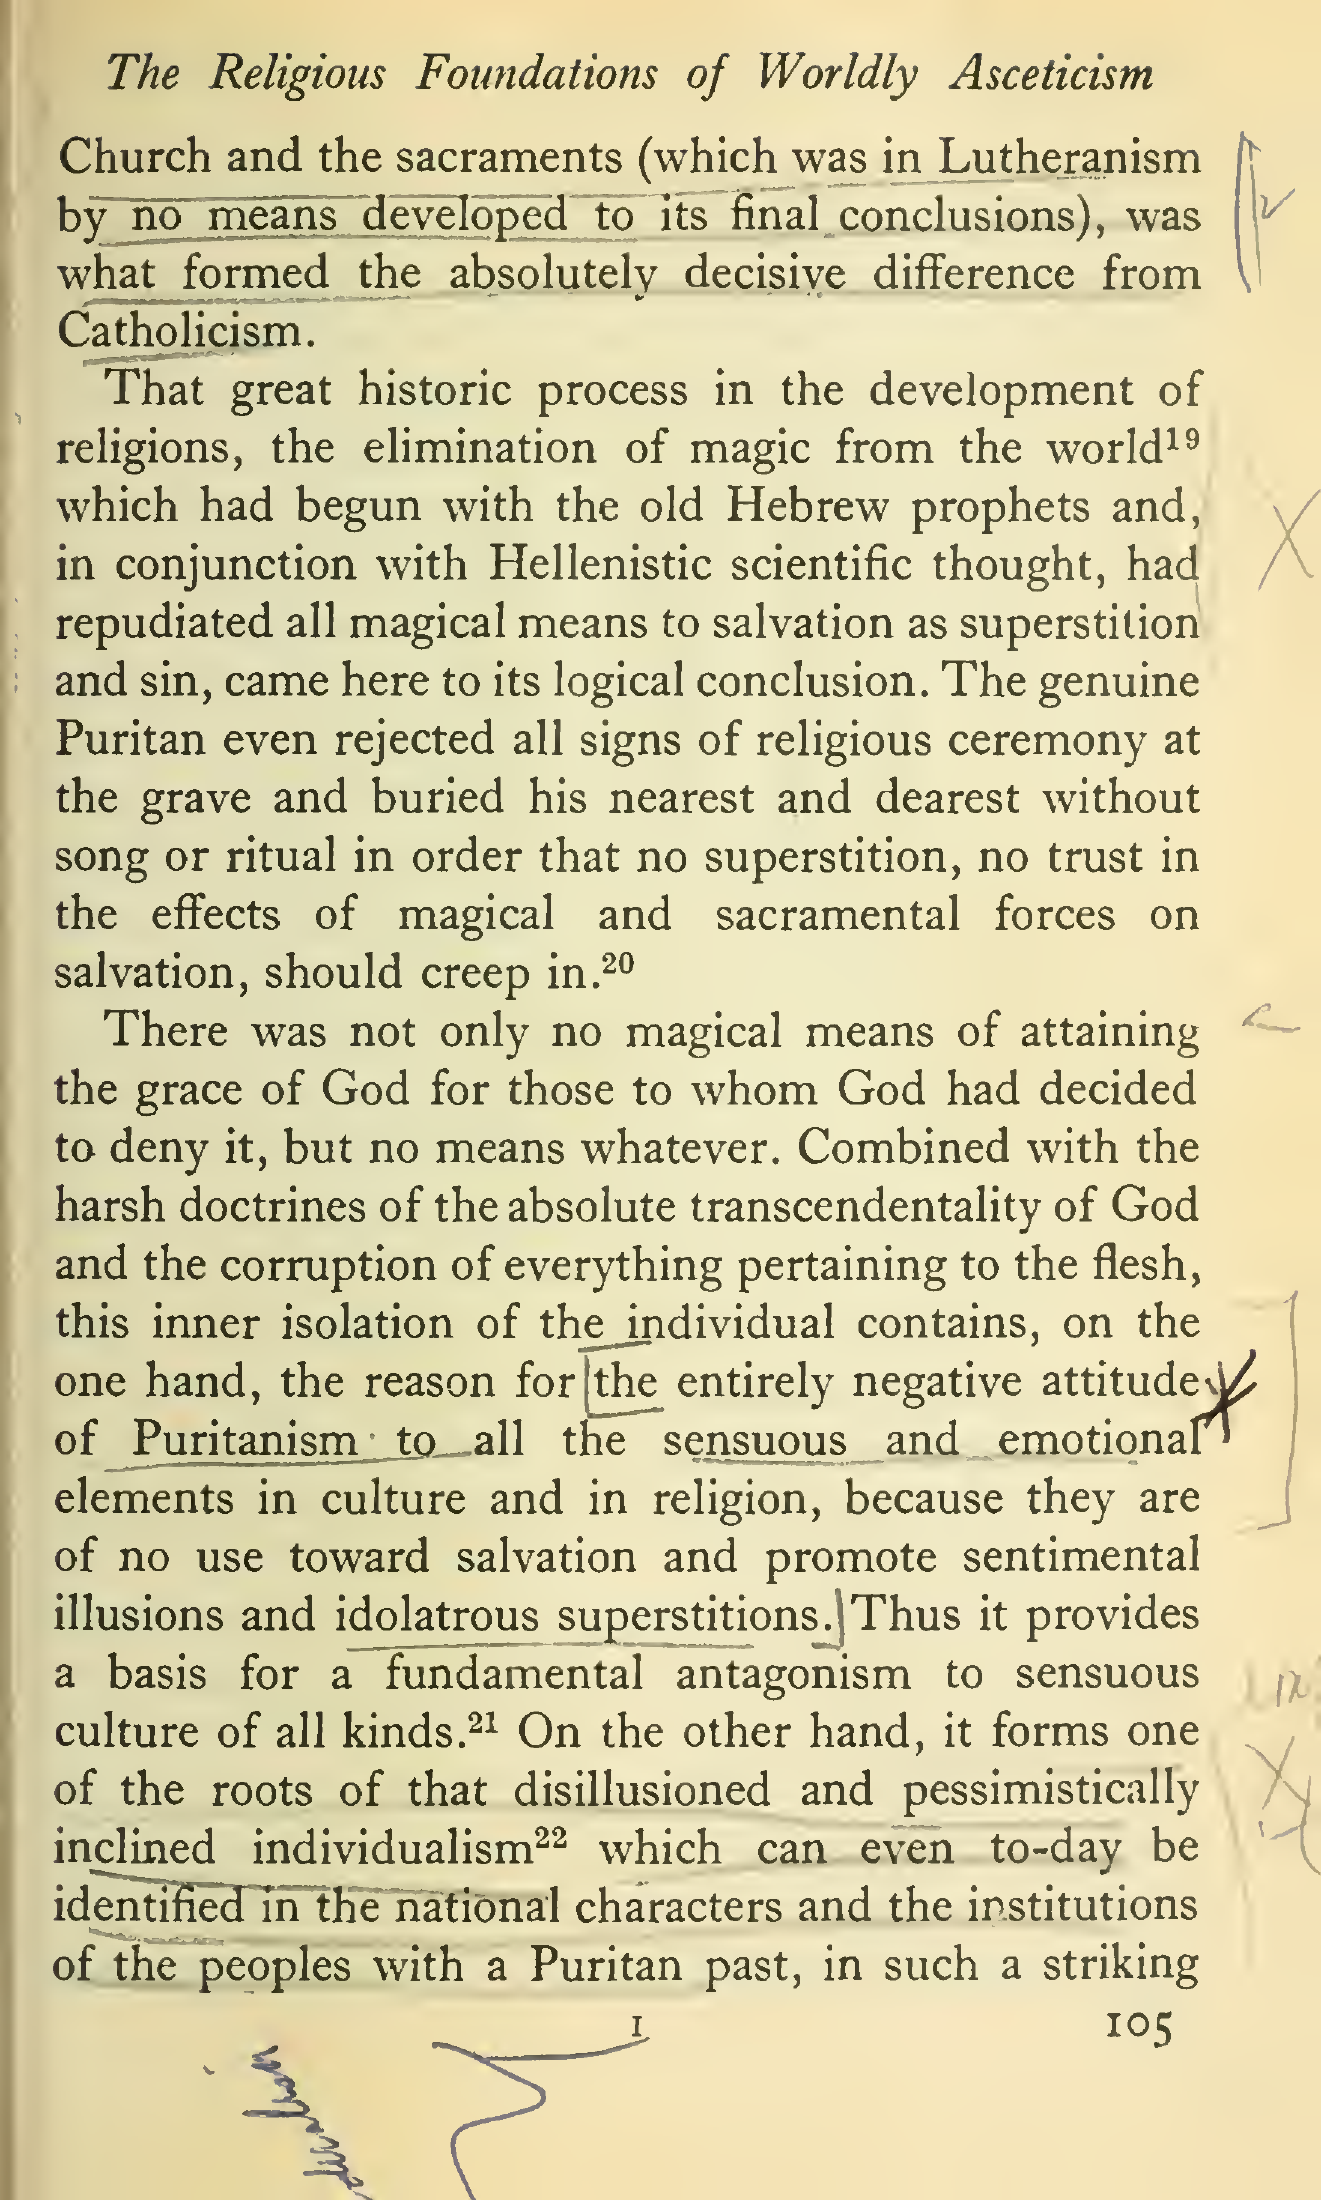 The Religious Foundations of Worldly Asceticism
Church and the sacraments (which was in Lutheranism
by no means developed to its final conclusions), was
what formed the absolutely decisive difference from
Catholicism.
That great historic process in the development of
religions, the elimination of magic from the world¹⁹
which had begun with the old Hebrew prophets and,
in conjunction with Hellenistic scientific thought, had
repudiated all magical means to salvation as superstition
and sin, came here to its logical conclusion. The genuine
Puritan even rejected all signs of religious ceremony at
the grave and buried his nearest and dearest without
song or ritual in order that no superstition, no trust in
the effects of magical and sacramental forces on
salvation, should creep in.²⁰
There was not only no magical means of attaining
the grace of God for those to whom God had decided
to deny it, but no means whatever. Combined with the
harsh doctrines of the absolute transcendentality of God
and the corruption of everything pertaining to the flesh,
this inner isolation of the individual contains, on the
one hand, the reason for the entirely negative attitude
of Puritanism to all the sensuous and emotional
elements in culture and in religion, because they are
of no use toward salvation and promote sentimental
illusions and idolatrous superstitions. Thus it provides
a basis for a fundamental antagonism to sensuous
culture of all kinds.²¹ On the other hand, it forms one
of the roots of that disillusioned and pessimistically
inclined individualism²² which can even to-day be
identified in the national characters and the institutions
of the peoples with a Puritan past, in such a striking
I
105